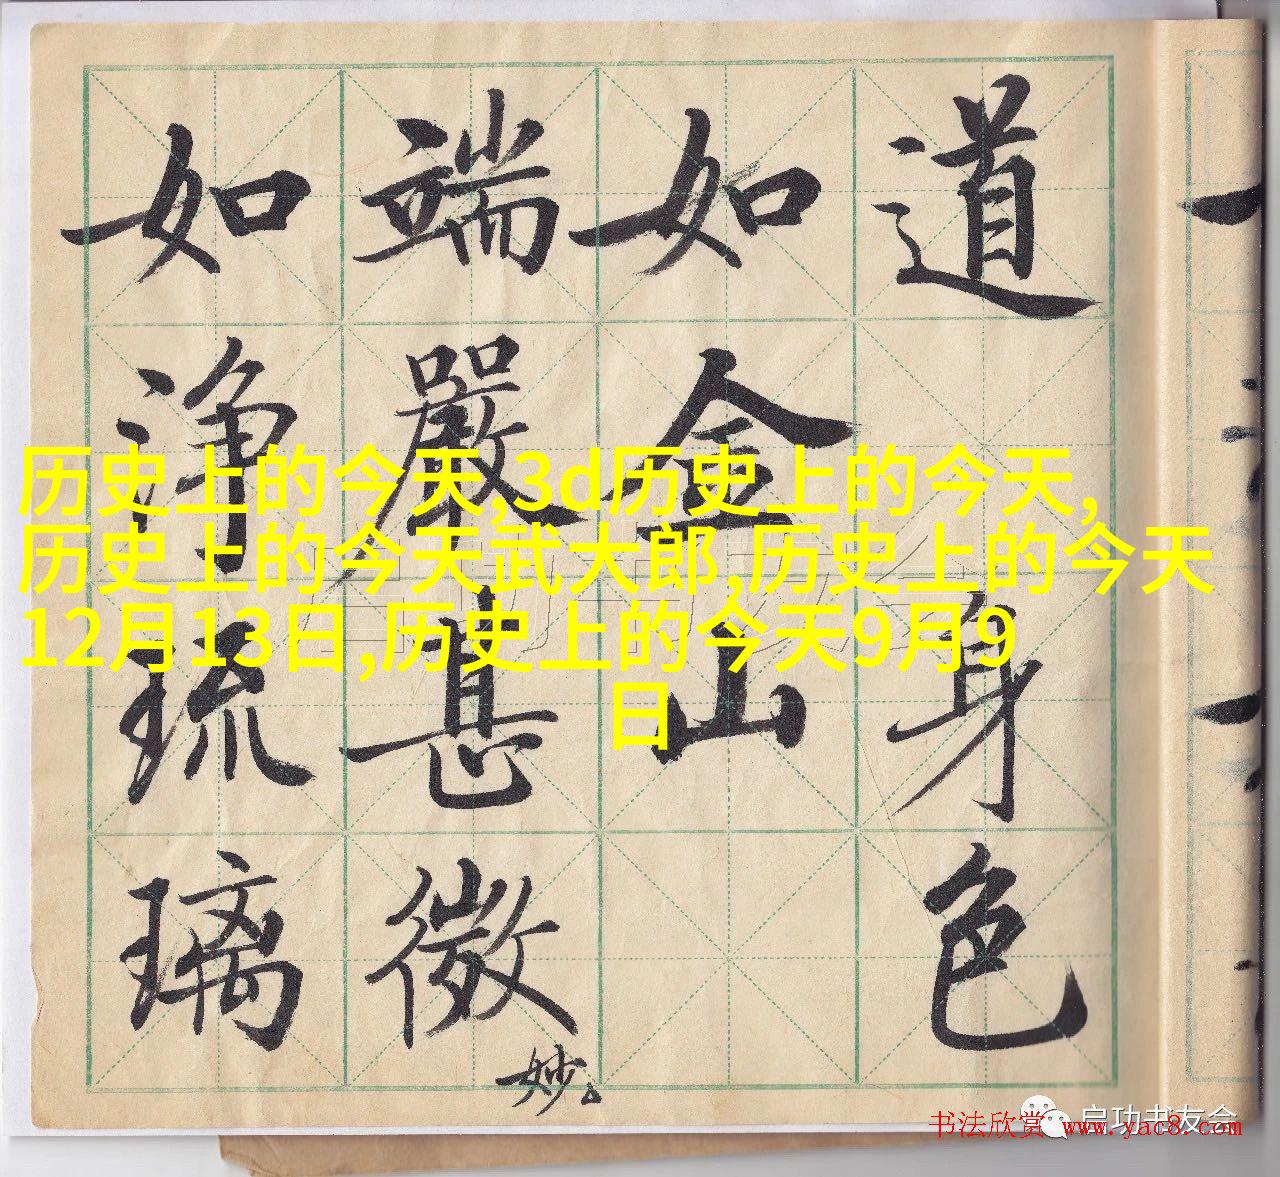 道身色
如金山
端嚴甚微妙
如淨琉璃
历史上的今天,3d历史上的今天,
历史上的今天武大郎,历史上的今天
12月13日,历史上的今天9月9
日
启功书友会
书法欣赏 www.yac8.com